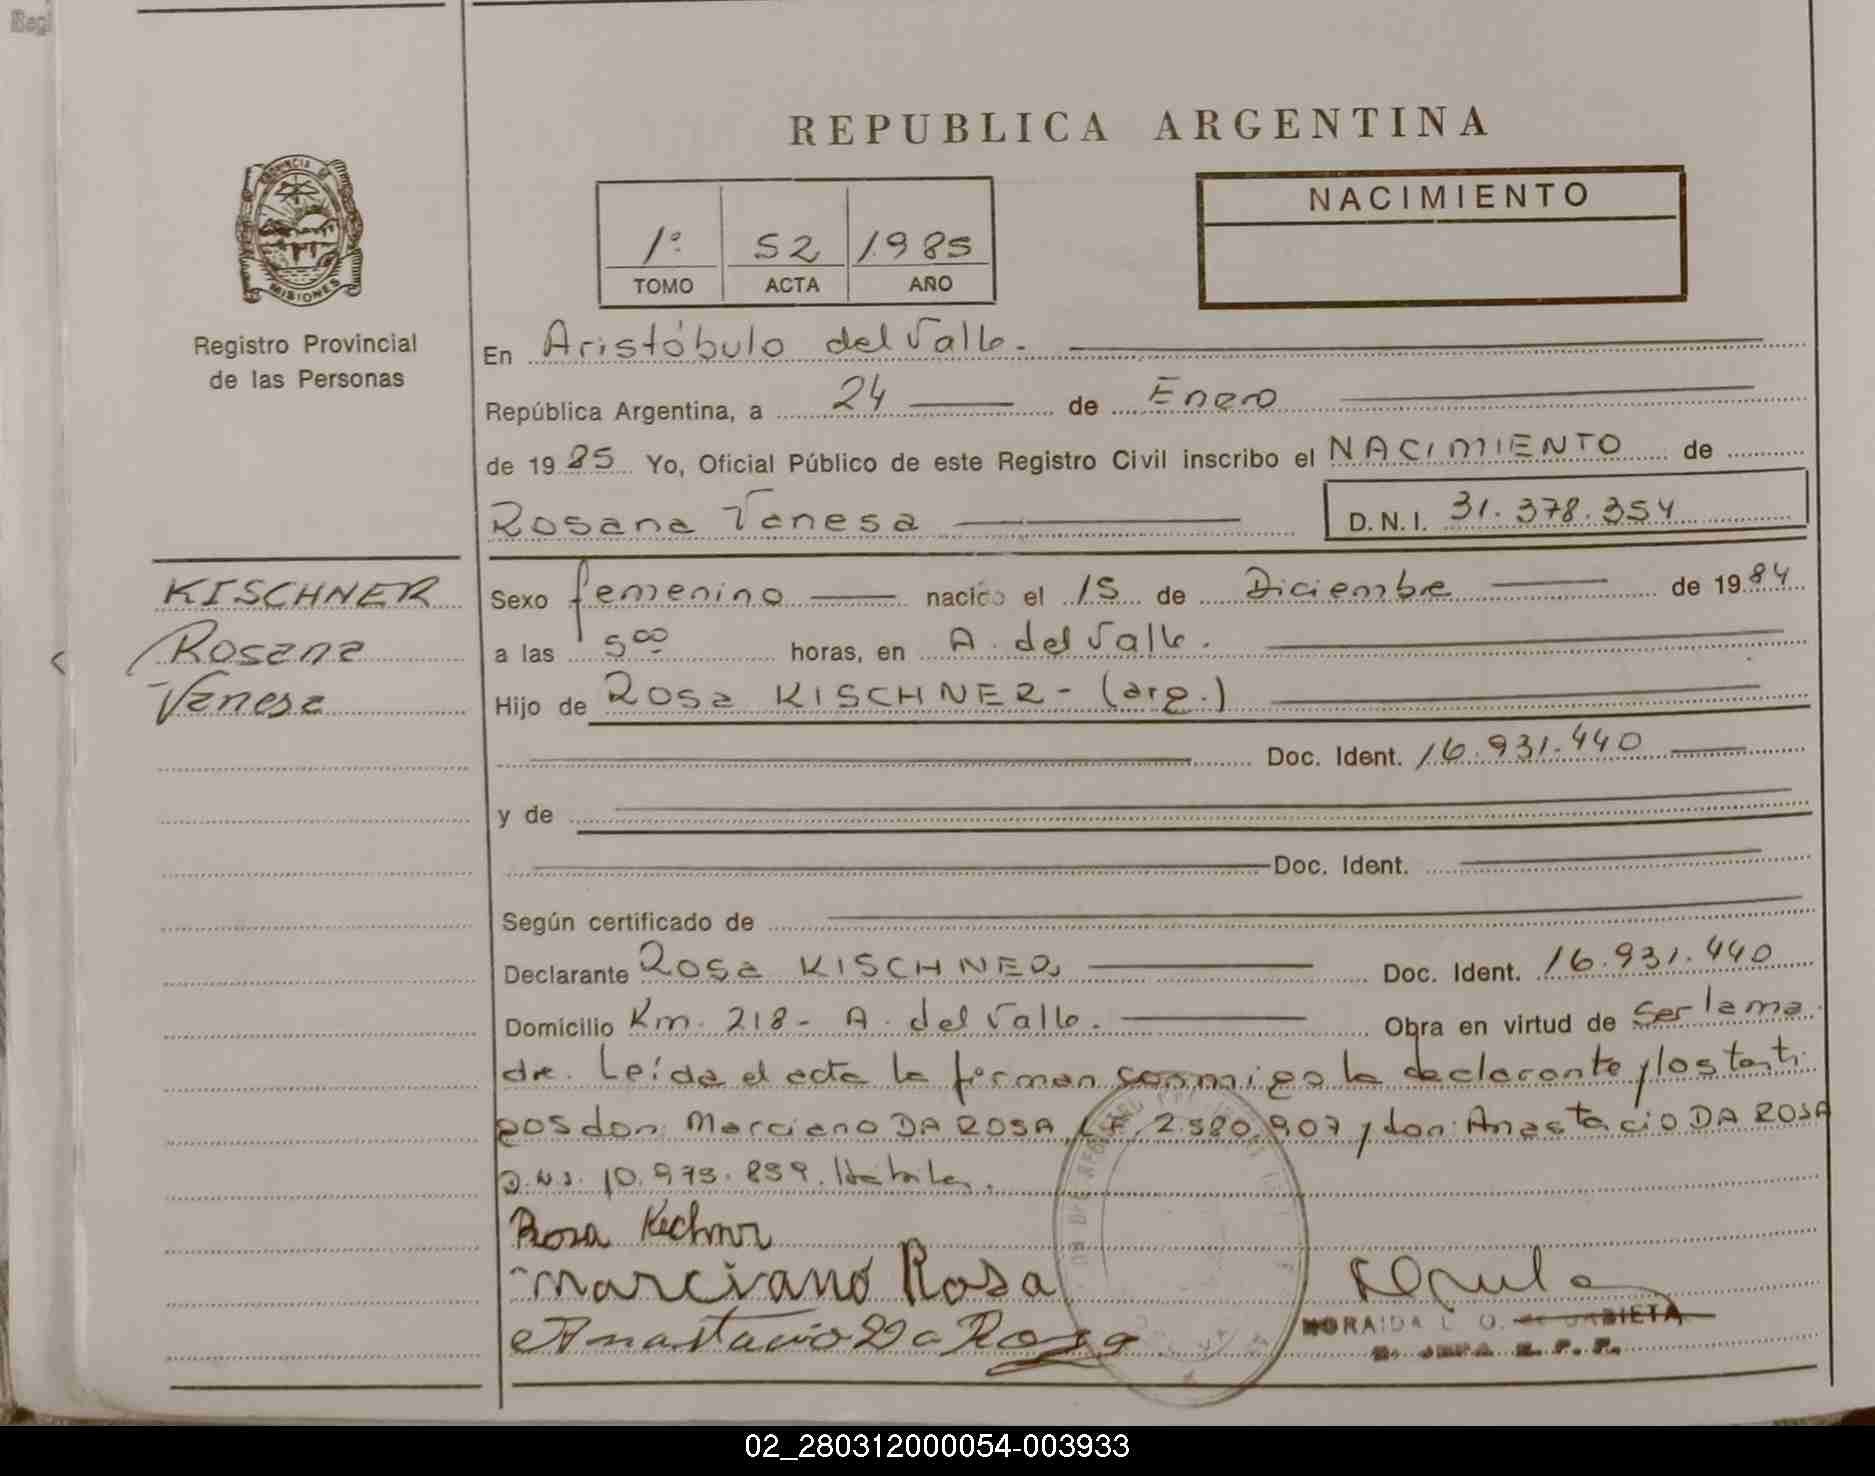 REPUBLICA ARGENTINA
PROVINCIA DE
MISIONES
Registro Provincial
de las Personas
1º 52 1985
TOMO ACTA AÑO
NACIMIENTO
En Aristóbulo del Valle.
República Argentina, a 24 de Enero
de 1985 Yo, Oficial Público de este Registro Civil inscribo el NACIMIENTO de
Rosana Vanesa D.N.I. 31.378.354
KISCHNER
Rosana
Vanesa
Sexo femenino nacido el 15 de Diciembre de 1984
a las 5⁰⁰ horas, en A. del Valle.
Hijo de Rosa KISCHNER - (arg.)
Doc. Ident. 16.931.440
y de
Doc. Ident.
Según certificado de
Declarante Rosa KISCHNER Doc. Ident. 16.931.440
Domicilio Km. 218 - A. del Valle. Obra en virtud de ser la ma
dre. Leída el acta la firman conmigo la declarante y los testi
gos don: Marciano DA ROSA, 2.580.907 y don: Anastacio DA ROSA
D.N.I. 10.975.859. Hábiles.
Rosa Kechnr
Marciano Rosa
Anastacio Da Rosa
02_280312000054-003933